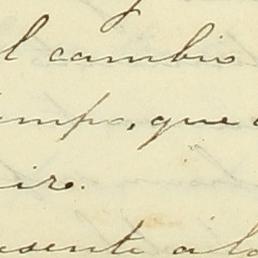 l cambio
empo, que
iro.
esente á la